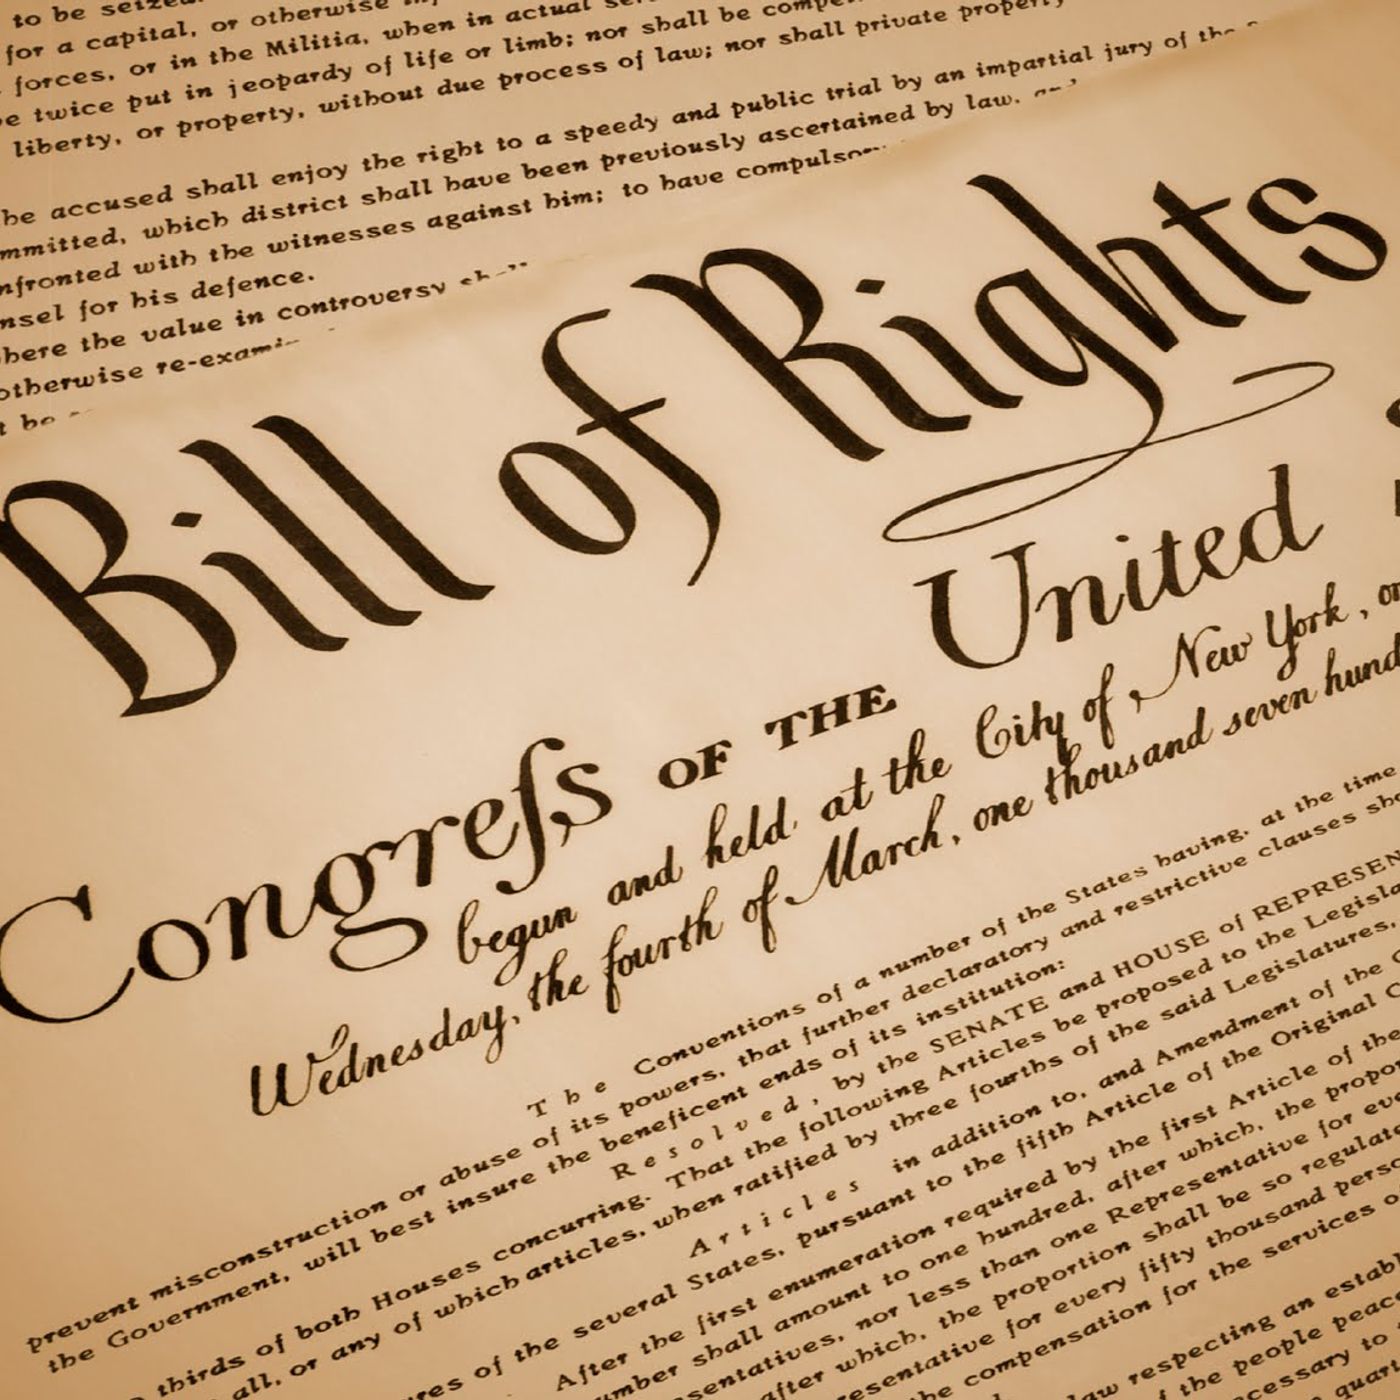 to be seized
for a capital, or otherwise
forces, or in the Militia, when in actual
twice put in jeopardy of life or limb; nor shall be
liberty, or property, without due process of law; nor shall private property
he accused shall enjoy the right to a speedy and public trial by an impartial jury of the
mmitted, which district shall have been previously ascertained by law, and
nfronted with the witnesses against him; to have compulsory
nsel for his defence.
here the value in controversy shall
otherwise re-exami
t be
Bill of Rights
Congreſs OF THE United
begun and held at the City of New York, on
Wednesday, the fourth of March, one thousand seven hund
The Conventions of a number of the States having, at the time
prevent misconstruction or abuse of its powers, that further declaratory and restrictive clauses sho
the Government, will best insure the beneficent ends of its institution:
Resolved, by the SENATE and HOUSE of REPRESEN
thirds of both Houses concurring. That the following Articles be proposed to the Legisla
all, or any of which articles, when ratified by three fourths of the said Legislatures,
Articles in addition to, and Amendment of the C
res of the several States, pursuant to the fifth Article of the Original C
After the first enumeration required by the first Article of the
mber shall amount to one hundred, after which, the propor
sentatives, nor less than one Representative for eve
after which, the proportion shall be so regulate
resentative for every fifty thousand perso
he compensation for the services o
law respecting an establ
the people peace
cessary to
quart